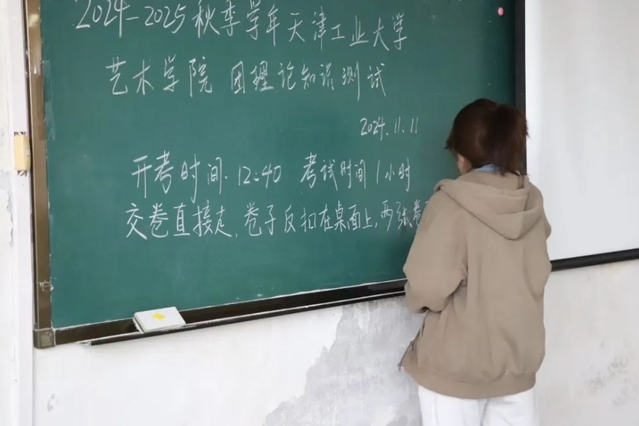 2024-2025秋季学年天津工业大学
艺术学院 团理论知识测试
2024.11.11
开考时间.12:40 考试时间1小时
交卷直接走,卷子反扣在桌面上,两张卷